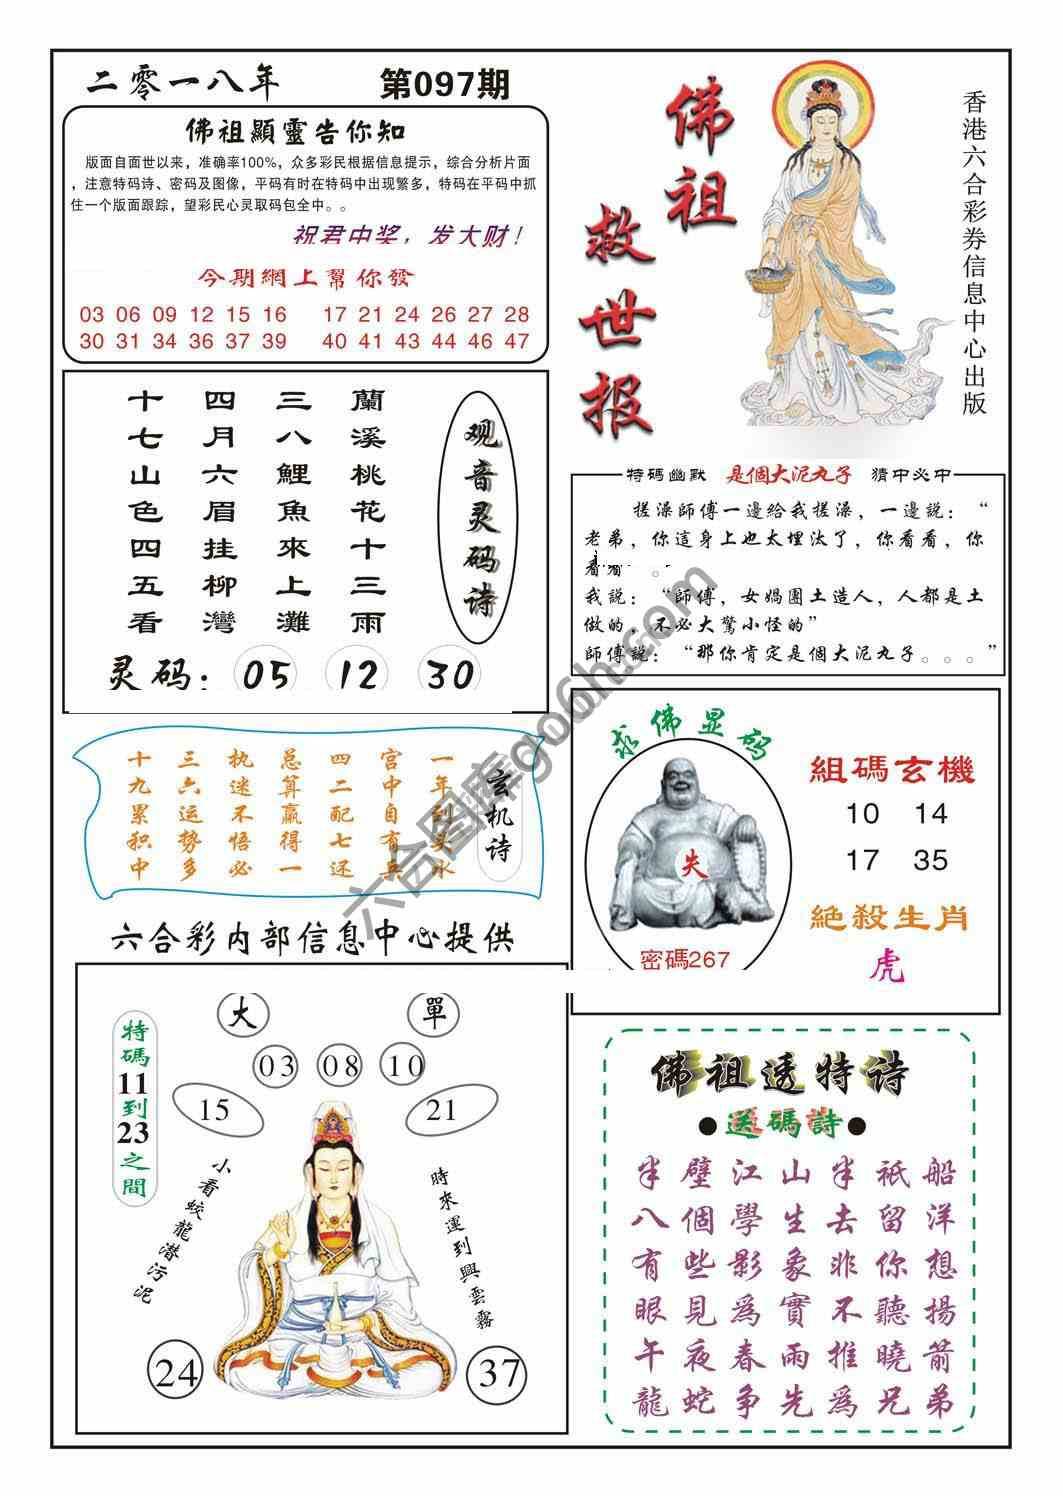 二零一八年 第097期
佛祖顯靈告你知
版面自面世以来，准确率100%，众多彩民根据信息提示，综合分析片面
，注意特码诗、密码及图像，平码有时在特码中出现繁多，特码在平码中抓
住一个版面跟踪，望彩民心灵取码包全中。。
祝君中奖，发大财！
今期網上幫你發
03 06 09 12 15 16 17 21 24 26 27 28
30 31 34 36 37 39 40 41 44 45 46 47
佛祖
救世报
香港六合彩券信息中心出版
观音灵码诗
蘭溪桃花十三雨
三八鯉魚來上灘
四月六眉挂柳灣
十七山色四五看
灵码：05 12 30
特碼幽默 是個大泥丸子 猜中必中
搓澡師傅一邊給我搓澡，一邊説：“
老弟，你這身上也太埋汰了，你看看，你
看看 。
我説：“師傅，女媧團土造人，人都是土
做的，不必大驚小怪的”
師傅説：“那你肯定是個大泥丸子。。。”
玄机诗
一年到头水
宫中自有兵
四二配七还
总算赢得一
执迷不悟必
三六运势多
十九累积中
求佛显码
失
密碼267
組碼玄機
10 14
17 35
絕殺生肖
虎
六合彩内部信息中心提供
特碼11到23之間
大 單
03 08 10
15 21
小看蛟龍潛污泥
時來運到興雲霧
24 37
佛祖透特诗
●送碼詩●
半璧江山半祇船
八個學生去留洋
有些影象非你想
眼見爲實不聽揚
午夜春雨推曉箭
龍蛇争先爲兄弟
六合图库go6h.com